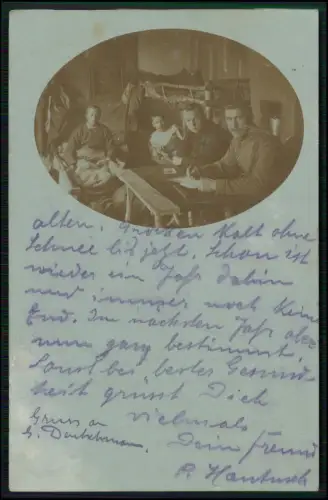 alten. Trocken Kalt ohne
Schnee bis jetzt. Schon ist
wieder ein Jahr dahin
und immer noch kein
End. Im nächsten Jahr aber
nun ganz bestimmt.
Sonst bei bester Gesund-
heit grüsst Dich
vielmals
Dein Freund
P. Hantusch
Gruss an
G.